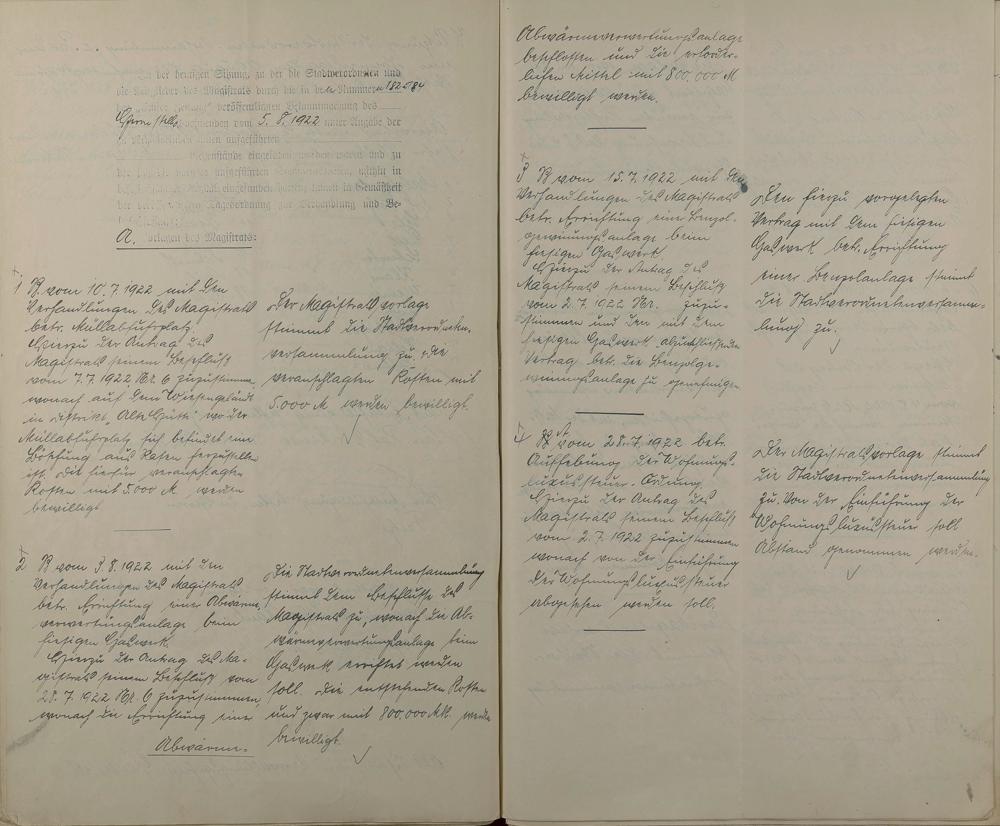 In der heutigen Sitzung, zu der die Stadtverordneten und
die Mitglieder des Magistrats durch die in den Nummern 182 & 84
veröffentlichten Bekanntmachung des
vom 5. 8. 1922 unter Angabe der
aufgeführten
Gegenstände eingeladen worden waren und zu
Tagesordnung zur Verhandlung und Be-
A. Vorlagen des Magistrats:
1 B. vom 10.7.1922 mit den
Verhandlungen des Magistrats
betr. Müllabfuhrplatz.
Hierzu der Antrag des
Magistrats seinem Beschluß
vom 7.7.1922 Nr. 6 zuzustimmen
wonach auf dem Wiesengelände
in Distrikt „Alte Hütte" wo der
Müllabfuhrplatz sich befindet eine
Böschung aus Rasen herzustellen
ist. Die hierfür veranschlagten
Kosten mit 5.000 M werden
bewilligt
Der Magistratsvorlage
stimmt die Stadtverordneten-
versammlung zu, die
veranschlagten Kosten mit
5.000 M werden bewilligt.
2 B vom 3.8.1922 mit den
Verhandlungen des Magistrats
betr. Errichtung einer Abwärme-
verwertungsanlage beim
hiesigen Gaswerk
Hierzu der Antrag des Ma-
gistrats seinem Beschluß vom
28.7.1922 Nr. 6 zuzustimmen,
wonach die Errichtung einer
Abwärme-
Die Stadtverordnetenversammlung
stimmt dem Beschlusse des
Magistrats zu, wonach die Ab-
wärmeverwertungsanlage beim
Gaswerk errichtet werden
soll. Die entstehenden Kosten
und zwar mit 800.000 Mk. werden
bewilligt.
Abwärmeverwertungsanlage
beschlossen und die erforder-
lichen Mittel mit 800,000 M
bewilligt werden.
3 B vom 15.7.1922 mit den
Verhandlungen des Magistrats
betr. Errichtung einer Benzol-
gewinnungsanlage beim
hiesigen Gaswerk.
Hierzu der Antrag des
Magistrats seinem Beschluß
vom 2.7.1922 Nr. zuzu-
stimmen und den mit dem
hiesigen Gaswerk abzuschließenden
Vertrag betr. die Benzolge-
winnungsanlage zu genehmigen
Den hierzu vorgelegten
Vertrag mit dem hiesigen
Gaswerk betr. Errichtung
einer Benzolanlage stimmt
die Stadtverordnetenversamm-
lung zu.
4 B vom 28.7.1922 betr.
Aufhebung der Wohnungs-
luxussteuer-Ordnung
Hierzu der Antrag des
Magistrats seinem Beschluß
vom 2.7.1922 zuzustimmen
wonach von der Einführung
der Wohnungsluxussteuer
abgesehen werden soll.
Der Magistratsvorlage stimmt
die Stadtverordnetenversammlung
zu. Von der Einführung der
Wohnungsluxussteuer soll
Abstand genommen werden.